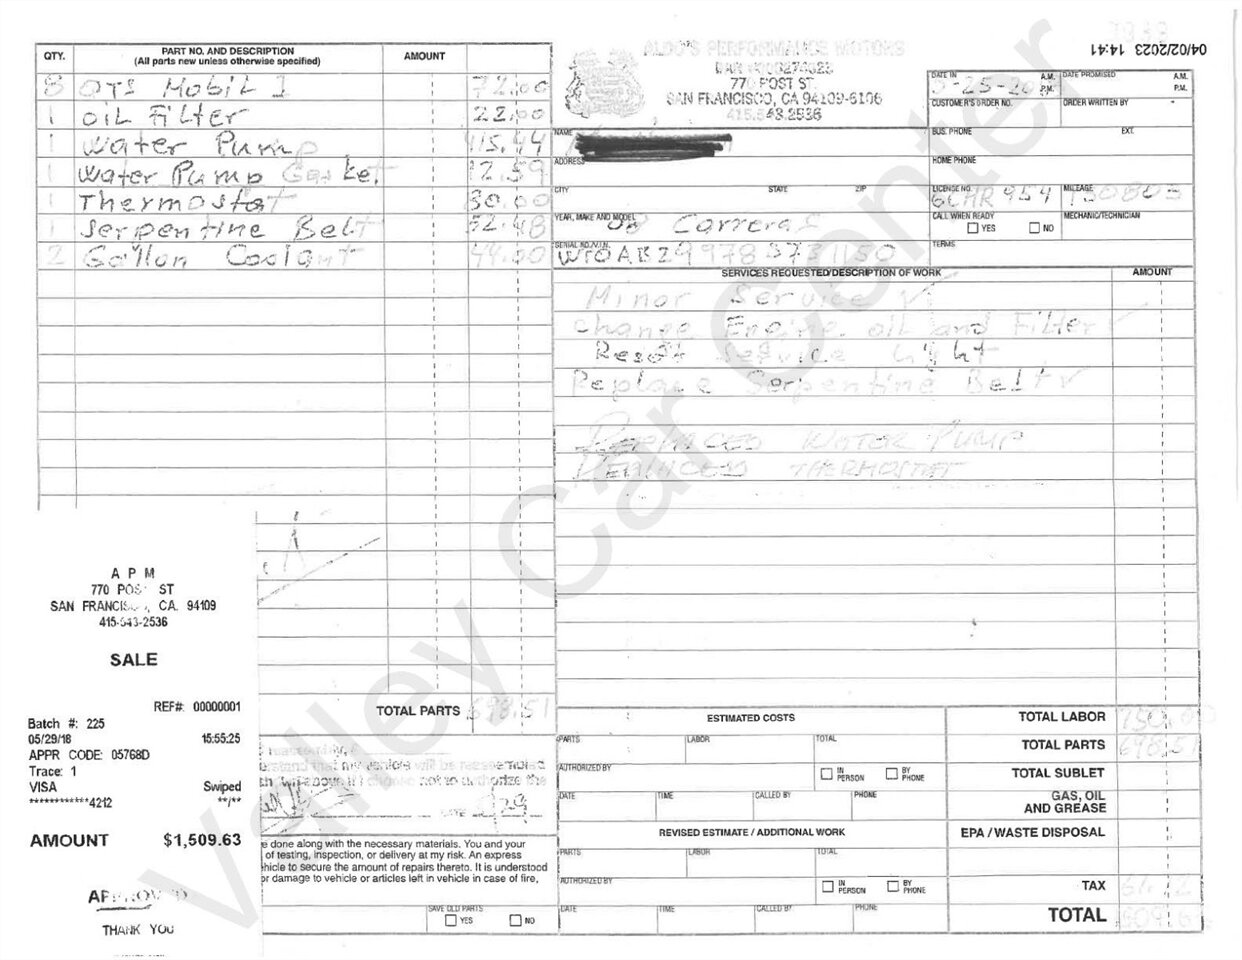 04/02/2023 14:41
QTY.
PART NO. AND DESCRIPTION
(All parts new unless otherwise specified)
AMOUNT
8 QTS Mobil 1 72.00
1 oil Filter 22.00
1 Water Pump 415.44
1 Water Pump Gasket 12.59
1 Thermostat 80.00
1 Serpentine Belt 52.48
2 Gallon Coolant 44.00
TOTAL PARTS 698.51
ALDO'S PERFORMANCE MOTORS
770 POST ST
SAN FRANCISCO, CA 94109-6106
415.643.2536
DATE IN A.M. P.M.
DATE PROMISED A.M. P.M.
CUSTOMER'S ORDER NO.
ORDER WRITTEN BY
NAME
BUS. PHONE EXT.
ADDRESS
HOME PHONE
CITY STATE ZIP
LICENSE NO. 954
MILEAGE
YEAR, MAKE AND MODEL 08 Carrera
CALL WHEN READY
YES NO
MECHANIC/TECHNICIAN
SERIAL NO./V.I.N.
TERMS
SERVICES REQUESTED/DESCRIPTION OF WORK AMOUNT
Minor Service
Change Engine oil and Filter
Reset Service Light
Replace Serpentine Belt
REPLACED WATER PUMP
REPLACED THERMOSTET
A P M
770 POST ST
SAN FRANCISCO, CA. 94109
415-643-2536
SALE
REF#: 00000001
Batch #: 225
05/29/18 15:55:25
APPR CODE: 05768D
Trace: 1
VISA Swiped
************4212 **/**
AMOUNT $1,509.63
APPROVED
THANK YOU
my vehicle will be reassembled
not to authorize the
DATE
e done along with the necessary materials. You and your
of testing, inspection, or delivery at my risk. An express
hicle to secure the amount of repairs thereto. It is understood
or damage to vehicle or articles left in vehicle in case of fire,
SAVE OLD PARTS
YES NO
ESTIMATED COSTS
PARTS LABOR TOTAL
AUTHORIZED BY
IN PERSON BY PHONE
DATE TIME CALLED BY PHONE
REVISED ESTIMATE / ADDITIONAL WORK
PARTS LABOR TOTAL
AUTHORIZED BY
IN PERSON BY PHONE
DATE TIME CALLED BY PHONE
TOTAL LABOR 750.00
TOTAL PARTS 698.51
TOTAL SUBLET
GAS, OIL
AND GREASE
EPA / WASTE DISPOSAL
TAX 61.12
TOTAL
Valley Car Center